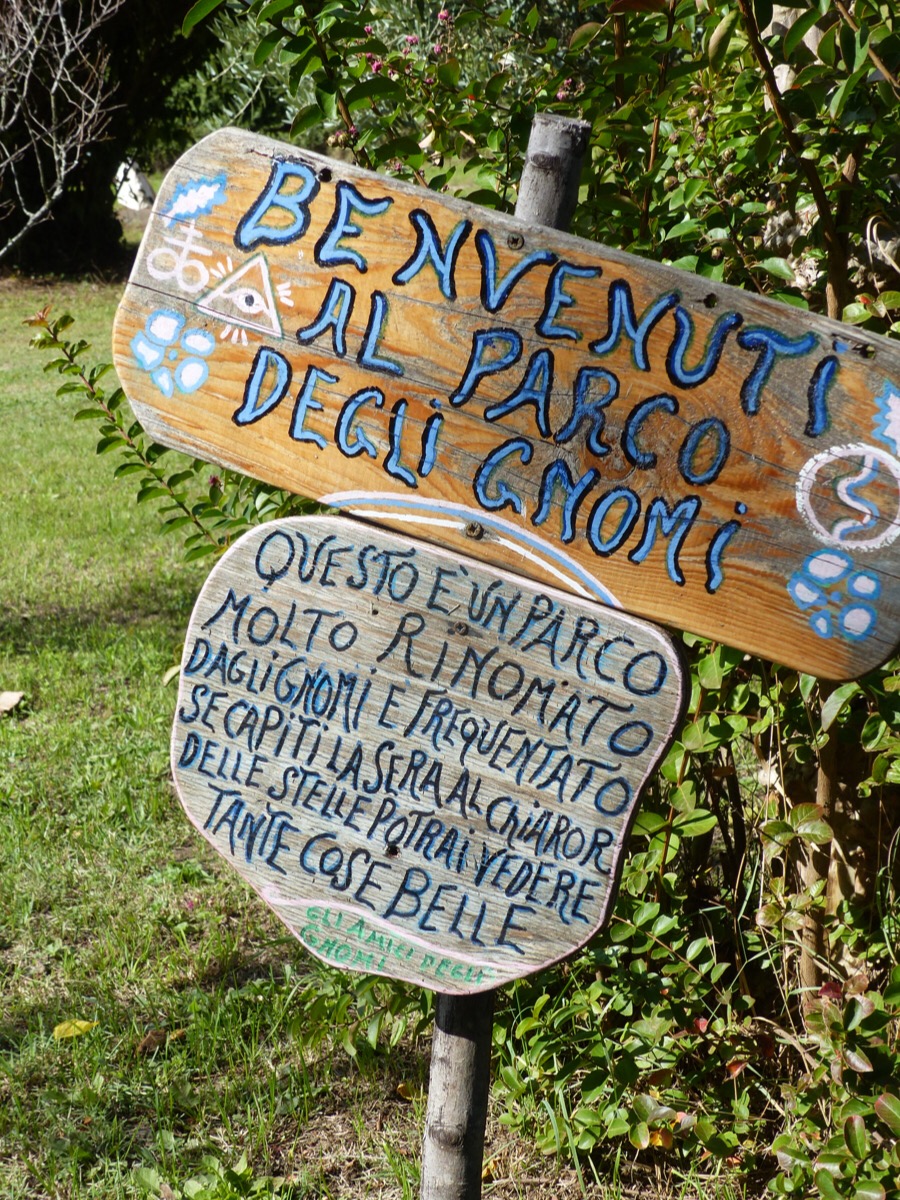 BENVENUTi
AL PARCO
DEGLi GNOMi
QUESTO È UN PARCO
MOLTO RINOMATO
DAGLI GNOMI E FREQUENTATO
SE CAPITI LA SERA AL CHiAROR
DELLE STELLE POTRAi VEDERE
TANTE COSE BELLE
GLI AMICI DEGLI
GNOMI